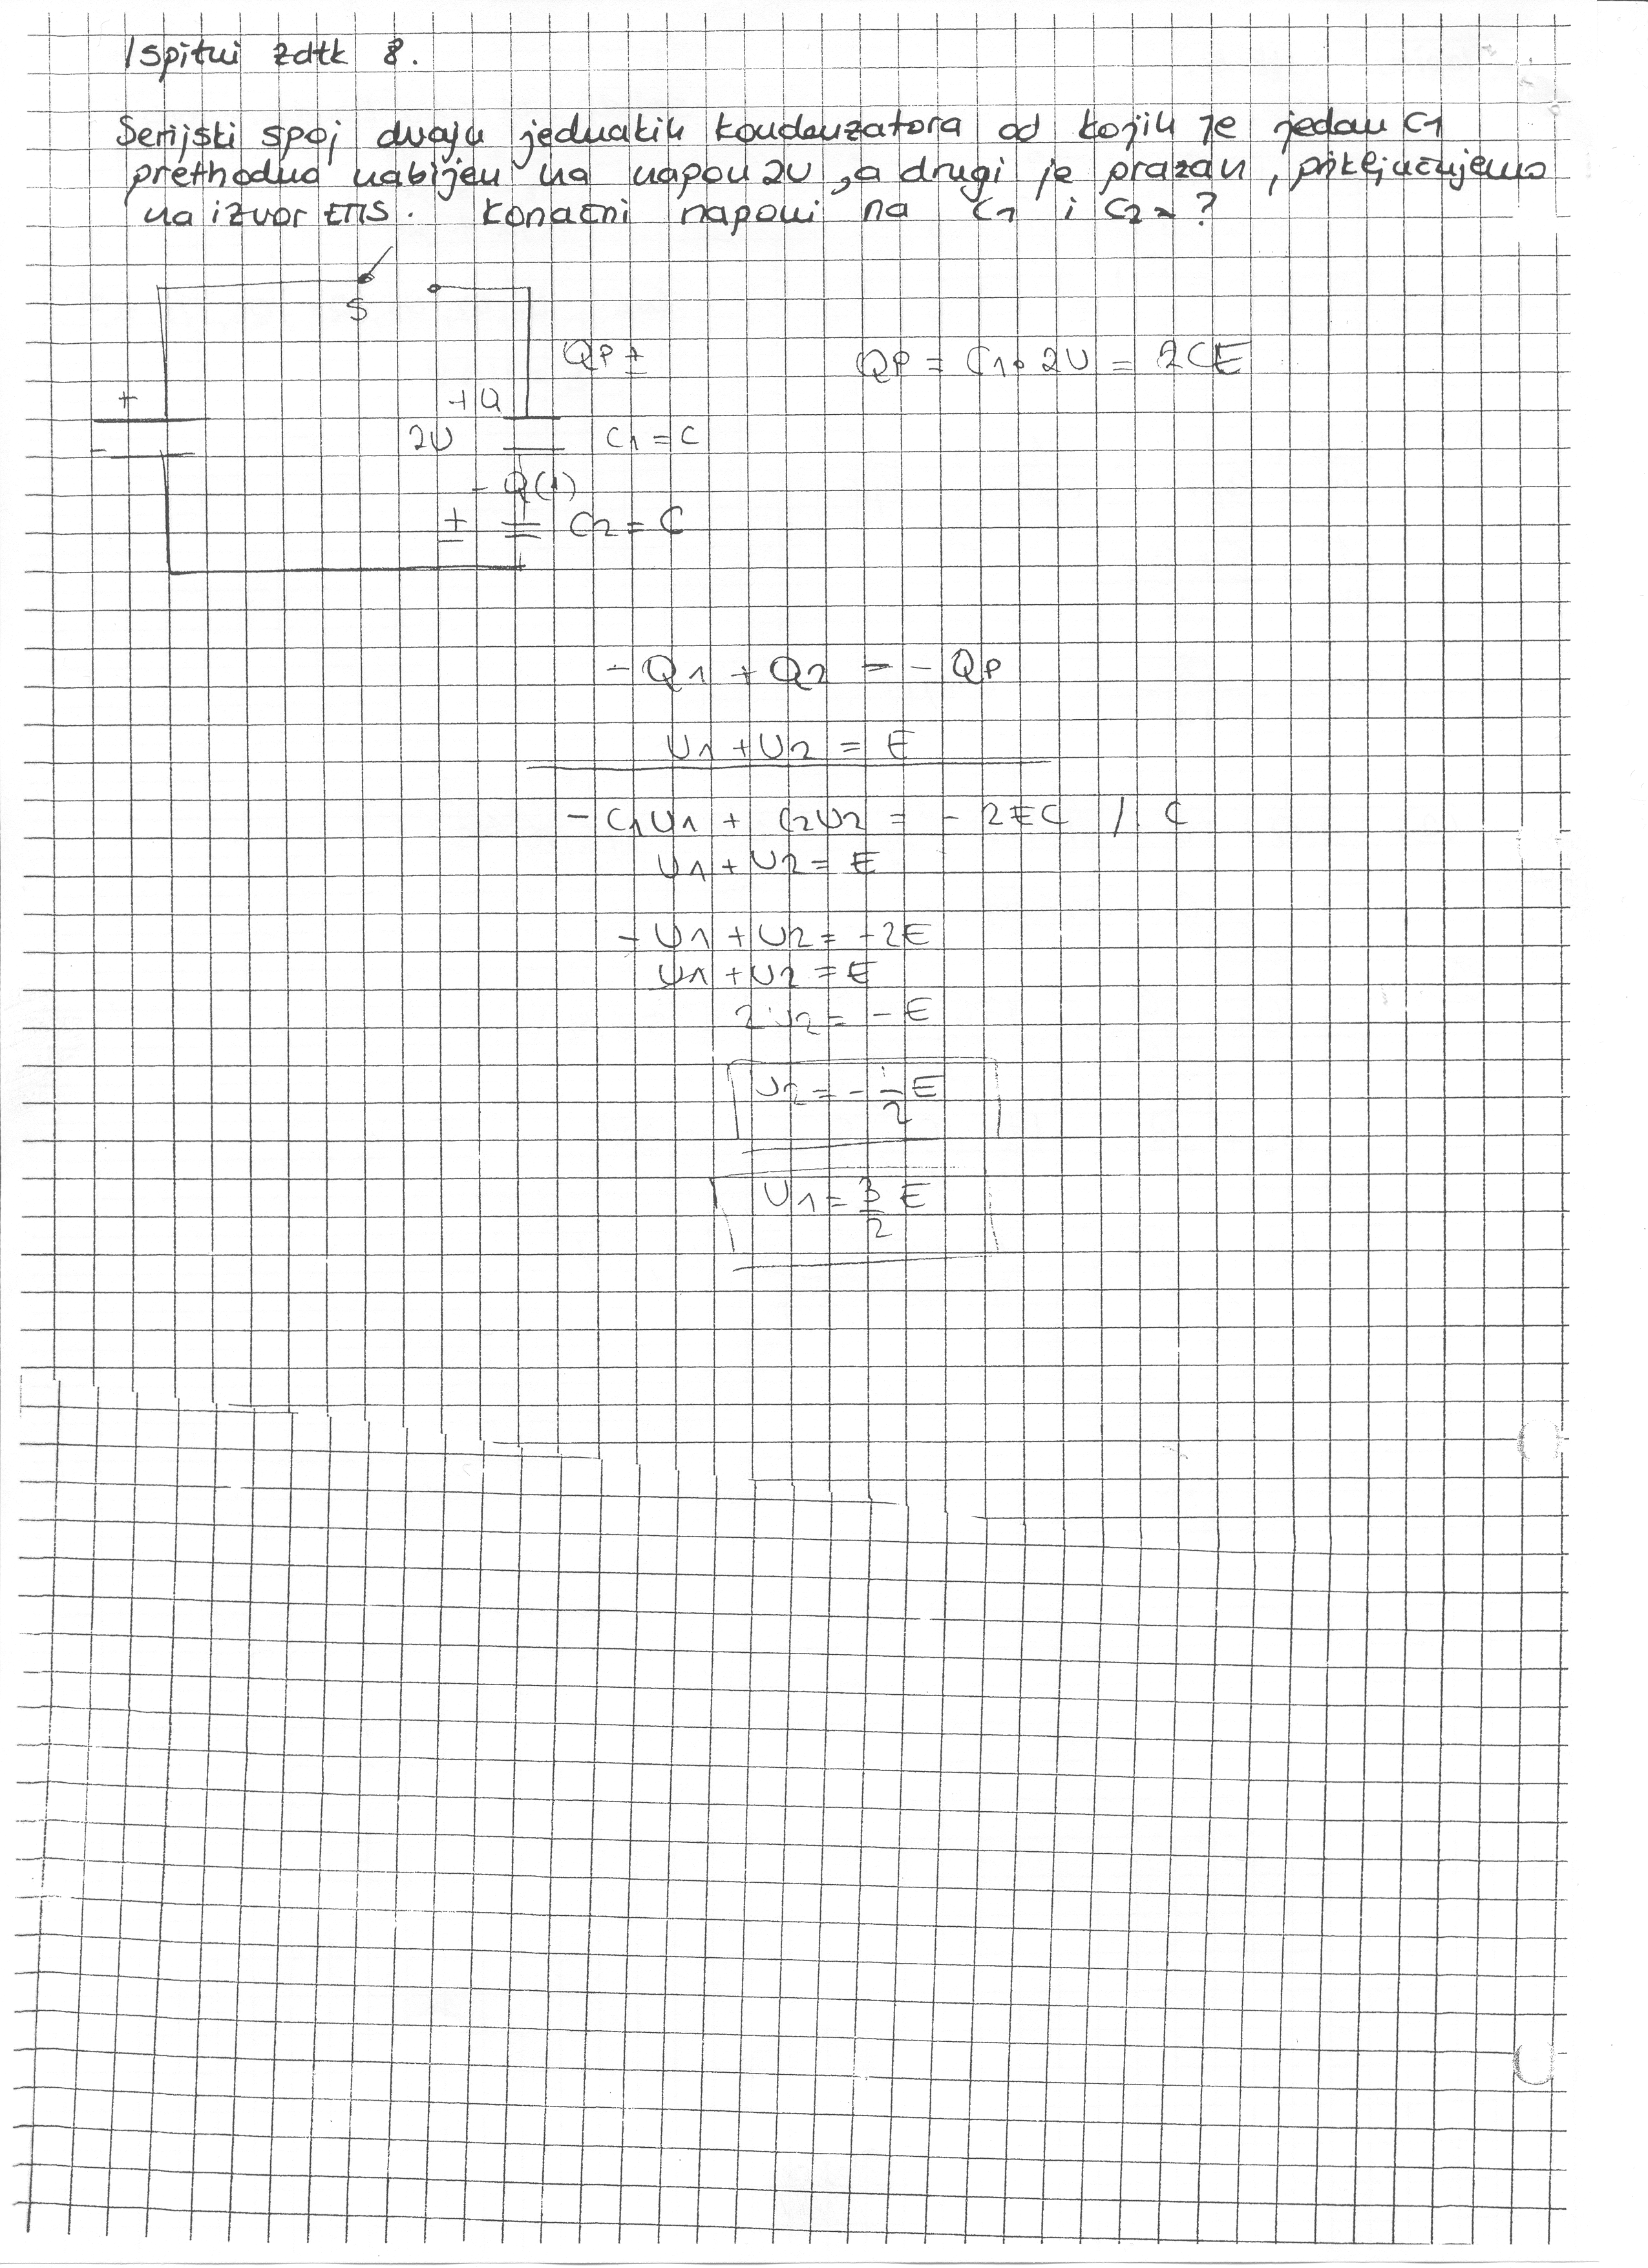 Ispitni zdtk 8.
Serijski spoj dvaju jednakih kondenzatora od kojih je jedan C1
prethodno nabijen na napon 2U, a drugi je prazan, priključujemo
na izvor EMS. Konačni naponi na C1 i C2 = ?
S
QP ±
QP = C1 • 2U = 2CE
+
+Q
-
2U
C1 = C
- Q(1)
± C2 = C
- Q1 + Q2 = - QP
U1 + U2 = E
- C1U1 + C2U2 = - 2EC / : C
U1 + U2 = E
- U1 + U2 = -2E
U1 + U2 = E
2U2 = - E
U2 = - 1/2 E
U1 = 3/2 E